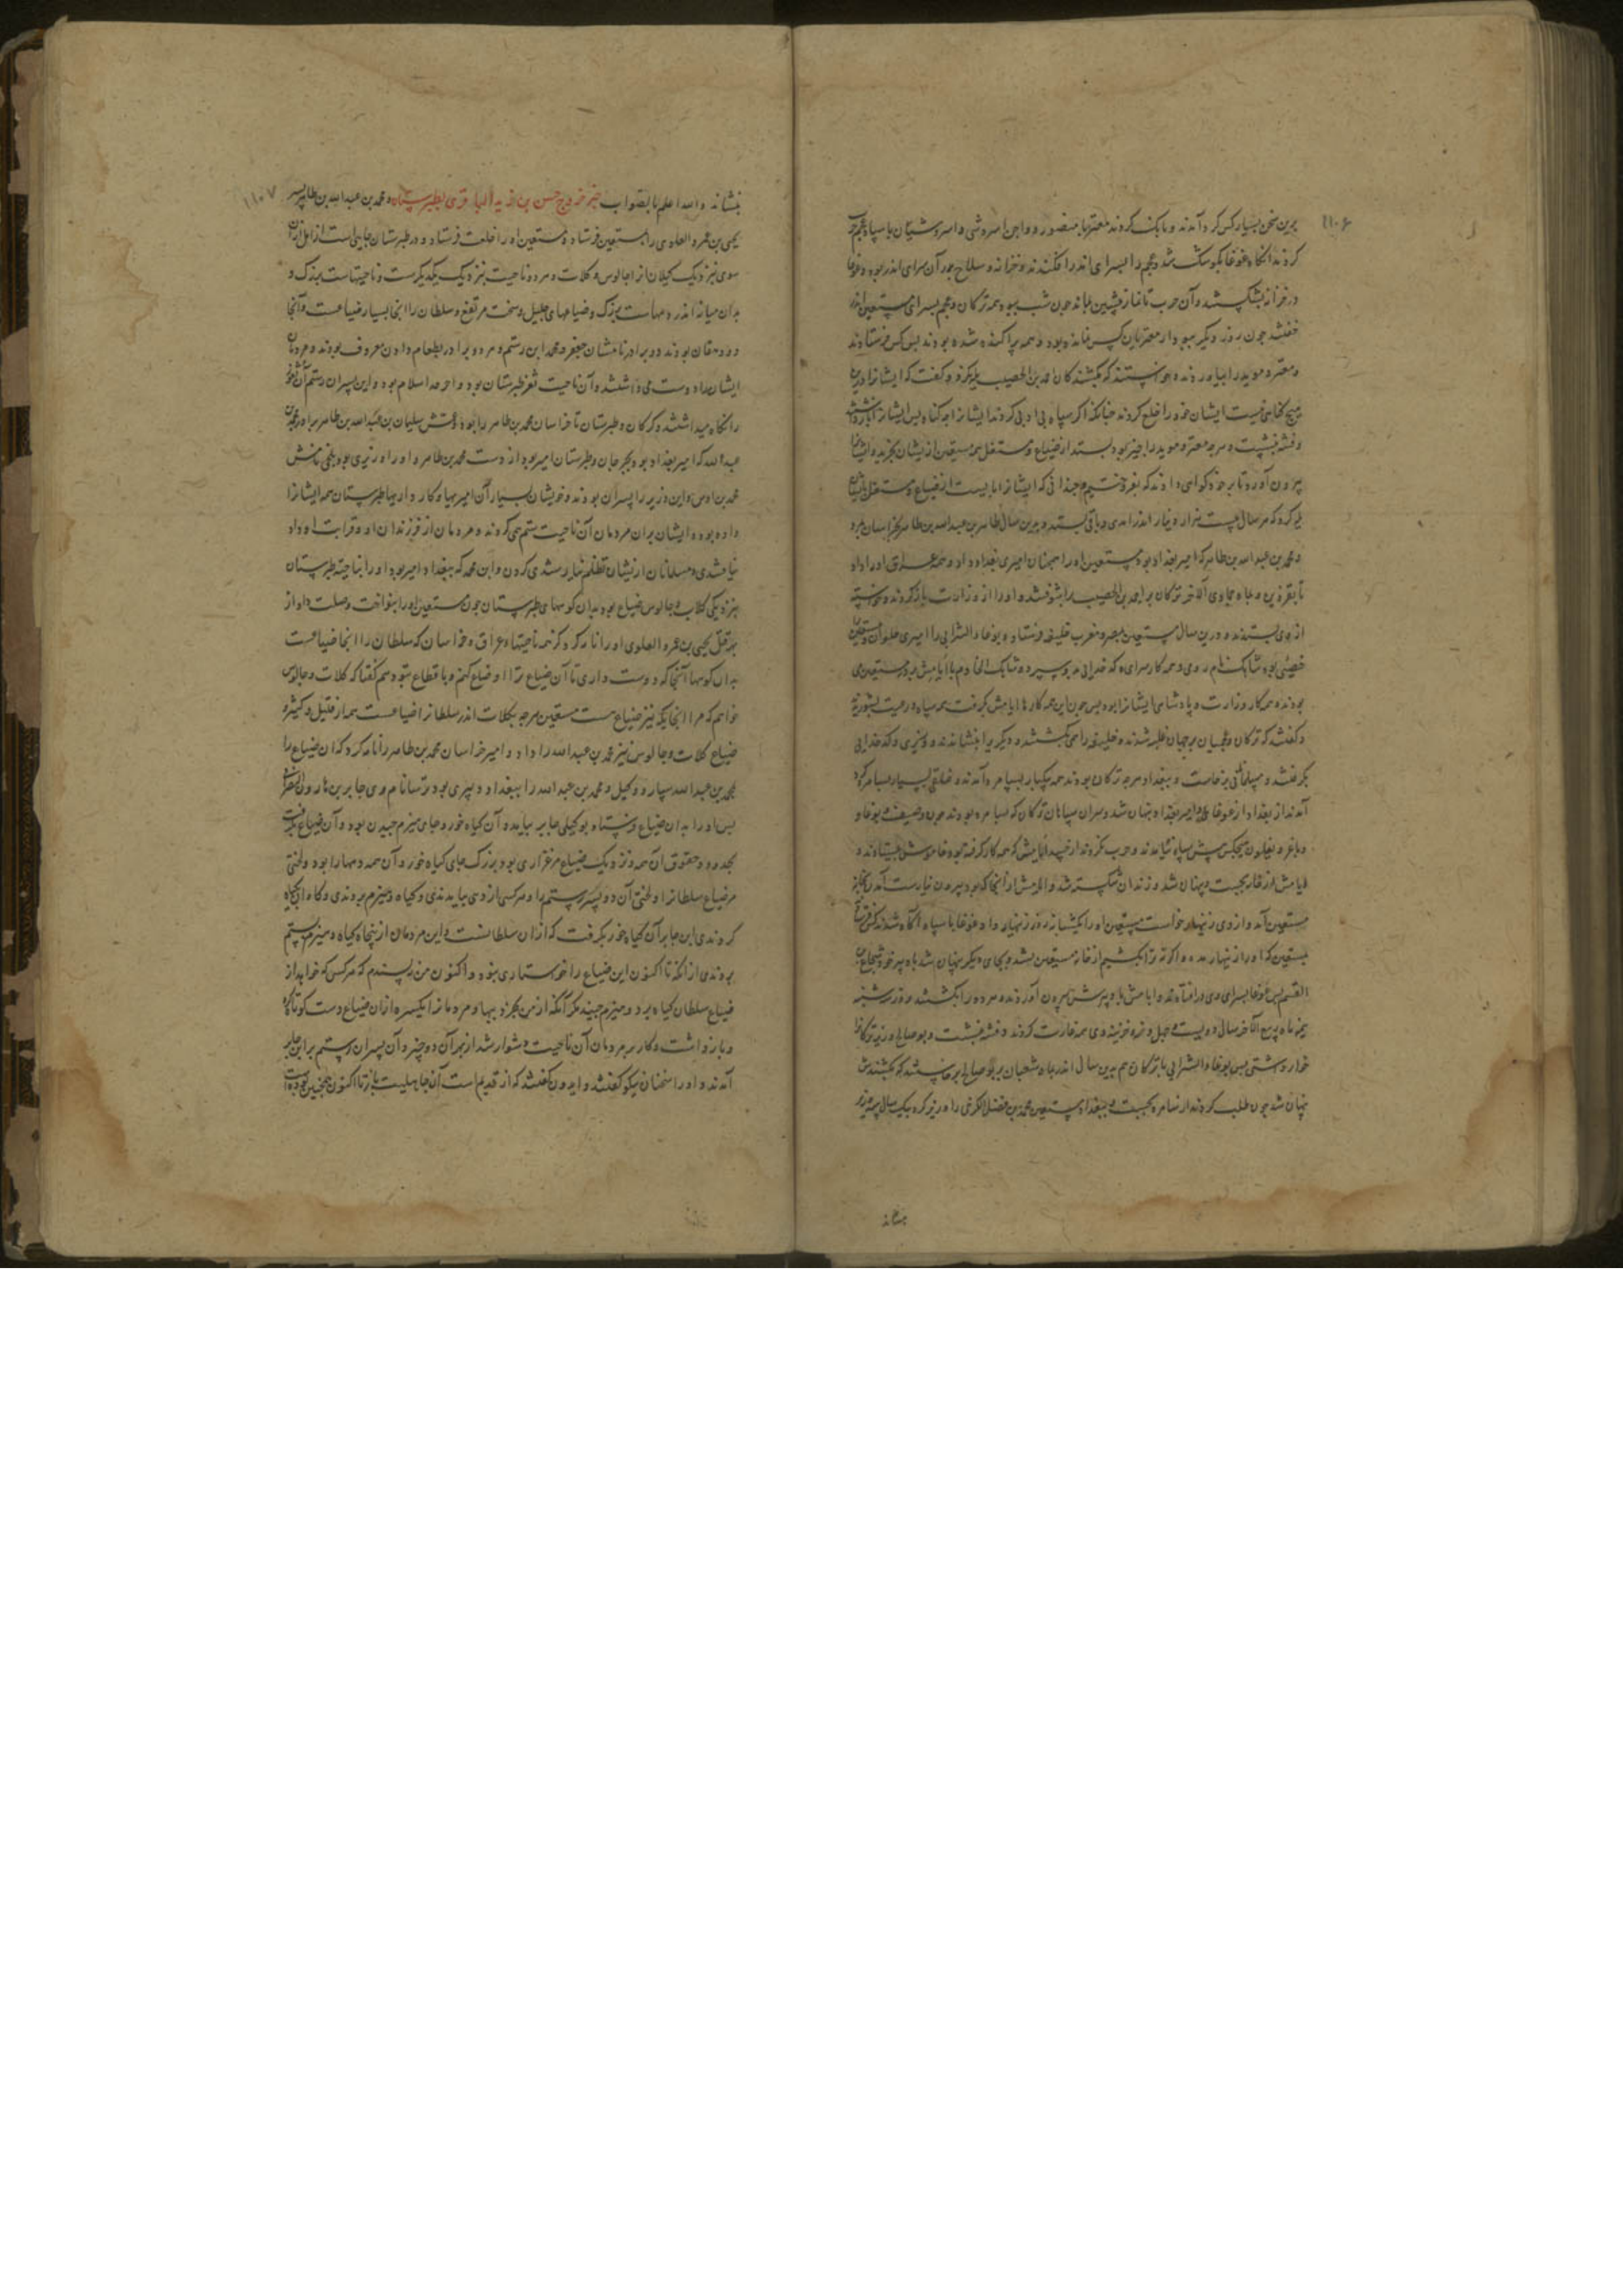 ۱۱۰۶
برین سخن بسیار کس گرد آمدند و بانک کردند معتز یا منصور و واجن اسروشی و اسروشنیان با سپاه عجم حرب
کردند آنگاه غوغا بکوشک شد و عجم را بسرای اندر افکندند و خزانه و سلاح بود آن سرای اندر بود و غوغا
در خزانه بشکستند و آن حرب تا نماز پیشین بماند چون شب ببود همه ترکان و عجم بسرای مستعین اندر
خفتند چون روز دیگر ببود از معتزیان کس نمانده بود و همه پراکنده شده بودند پس کس فرستادند
و معتز و موید را بیاوردند و خواستند که بکشندشان احمد بن الخصیب و گفت که ایشانرا درین
هیچ گناهی نیست ایشان خود را خلع کردند چنانکه اگر سپاه بی ادبی کردند ایشانرا چه گناه پس ایشانرا
و فتنه بنشست و هرچه معتز و موید را چیز بود بستد از ضیاع و مستغل همه مستعین ازیشان بخرید و ایشانرا
بیرون آورد تا بر خود گواهی دادند که بفروختیم و چندانی که ایشانرا بایست از ضیاع و مستغل
کرد که هر سال بیست هزار دینار اندر آمدی و باقی بستد و برین سال طاهر بن عبدالله بن طاهر بخراسان بمرد
و محمد بن عبدالله بن طاهر که امیر بغداد بود مستعین او را همچنان امیری بغداد داد و همه عراق او را داد
تا بقزوین و بماه جمادی الآخر ترکان بر احمد بن الخصیب بشوفتند و او را از وزارت باز کردند و خواسته
ازوی بستدند و درین سال مستعین بمصر و مغرب خلیفه فرستاد و بوغا الشرابی را امیری حلوان
خصیی بود شاهک نام روی و همه کار سرای که خدایی بدو سپرده و شاهک الخادم با اتامش و مستعین می
بودند و همه کار وزارت و پادشاهی ایشانرا بود پس چون این همه کارها اتامش گرفت همه سپاه و رعیت بشوریدند
و گفتند که ترکان و عجمیان بر جهان غلبه شدند و خلیفه را همی بکشند و دیگر یرا بنشانند و وزیری و کدخدایی
بگرفتند و مسلمانی برخاست و ببغداد هرچه ترکان بودند همه بیکبار بسامره آمدند و خلقی بسیار بسامره گرد
آمدند از بغداد از غوغا و امیر بغداد پنهان شد و سران سپاهان ترکان که بسامره بودند چون وصیف و بوغا و
و باغر و بغلون هیچکس پیش سپاه نیامدند و حرب نکردند از خشم اتامش که همه کار گرفته بود و خاموش بیستادند و
اتامش از خانه بجست و پنهان شد و زندان شکسته شد و اتامش از آنجا که بود بیرون نیارست آمدن
مستعین آمد و ازوی زنهار خواست مستعین او را یک شبانه روز زنهار داد و غوغا با سپاه آگاه شدند کس فرستادند
بمستعین که او را زنهار مده و اگر نه ترا بکشیم از خانه مستعین بشد و بجای دیگر پنهان شد با دبیر خود شجاع بن
القسم پس غوغا بسرای وی در افتادند و اتامش با دبیرش بیرون آوردند و هر دو را بکشتند روز شنبه
نیمه ماه ربیع الآخر سال دویست و چهل و نه و خزینه وی همه غارت کردند و فتنه بنشست و بو صالح وزیر ترکانرا
خوار داشتی پس بوغا الشرابی با ترکان هم بدین سال اندر ماه شعبان بر بو صالح برخاستند که بکشندش
پنهان شد چون طلب کردند از سامره بجست و ببغداد مستعین محمد بن فضل الکرخی را وزیر کرد
بنشاند
۱۱۰۷
بنشاند والله اعلم بالصواب خبر خروج حسن بن زید الباقری بطبرستان و محمد بن عبدالله بن طاهر سر
یحیی بن عمرو العلوی را بمستعین فرستاد و مستعین او را خلعت فرستاد و در طبرستان جایی است از
سوی نزدیک گیلان از چالوس و کلات و هر دو ناحیت نزدیک یکدیگرست و ناحیتهاست بزرگ و
بدان میانه اندر دیهاست بزرگ و ضیاعهای جلیل و سخت مرتفع و سلطان را آنجا بسیار ضیاعست و آنجا
دو دهقان بودند دو برادر نامشان جعفر و محمد ابن رستم و هر دو برادر بطعام دادن معروف بودند و مردمان
ایشانرا دوست می داشتند و آن ناحیت ثغر طبرستان بود و آخر حد اسلام بود و این پسران رستم آن ثغر
را نگاه میداشتند و گرگان و طبرستان تا خراسان محمد بن طاهر را بود و عمش سلیمان بن عبدالله بن طاهر برادر محمد بن
عبدالله که امیر بغداد بود بجرجان و طبرستان امیر بود از دست محمد بن طاهر و او را وزیری بود بلخی نامش
محمد بن اوس و این وزیر را پسران بودند و خویشان بسیار آن امیریها و کار داریها طبرستان همه ایشانرا
داده بود و ایشان بران مردمان آن ناحیت ستم همی کردند و مردمان از فرزندان او و قرابت او داد
نیافتندی و مسلمانان ازیشان تظلم نیارستندی کردن و این محمد که ببغداد امیر بود او را بناحیت طبرستان
بنزدیکی کلات و چالوس ضیاع بود بدان کوههای طبرستان چون مستعین او را بنواخت و صلت داد از
بهر قتل یحیی بن عمرو العلوی او را نامه کرد و گر همه ناحیتهاء عراق و خراسان که سلطان را آنجا ضیاعست
بدان کوهها آنجا که دوست داری تا آن ضیاع ترا اوضاع کنم و باقطاع بتو دهم گفتا که کلات و چالوس
خواهم که مرا آنجایگه نیز ضیاع هست مستعین هرچه بکلات اندر سلطانرا ضیاعست همه از قلیل و کثیر و
ضیاع کلات و چالوس نیز محمد بن عبدالله را داد و امیر خراسان محمد بن طاهر را نامه کرد که آن ضیاع را
بمحمد بن عبدالله سپارد و وکیل محمد بن عبدالله را ببغداد دبیری بود ترسا نام وی جابر بن هارون
پس او را بدان ضیاع فرستاد بوکیلی جابر بیامد و آن گیاه خور و جای هیزم چیدن بود و آن ضیاع بگرفت
بحدود و حقوق آن همه و نزدیک ضیاع مرغزاری بود بزرگ جای گیاه خور و آن همه دیهها را بود و لختی
مر ضیاع سلطانرا و لختی آن دو پسر رستم را و هر کسی از وی بیامدندی و گیاه و هیزم بردندی و گاه آنجا چراه
کردندی این جابر آن گیاه خور بگرفت که ازان سلطانست و این مردمان از پنجاه گیاه و هیزم بستم
بردندی از آنکه تا اکنون این ضیاع را خواستاری نبود و اکنون من نپسندم که هرکس که خواهد از
ضیاع سلطان گیاه برد و هیزم چیند مگر آنکه از من بخرد ببها و مردمانرا یکسره ازان ضیاع دست کوتاه کرد
و باز داشت و کار بر مردمان آن ناحیت دشوار شد از بهر آن دو چیز و آن پسران رستم بر این جابر
آمدند و او را سخنان نیکو گفتند و ایدون گفتند که از قدیم است آن جاهلیت باز تا اکنون همچنین بوده است